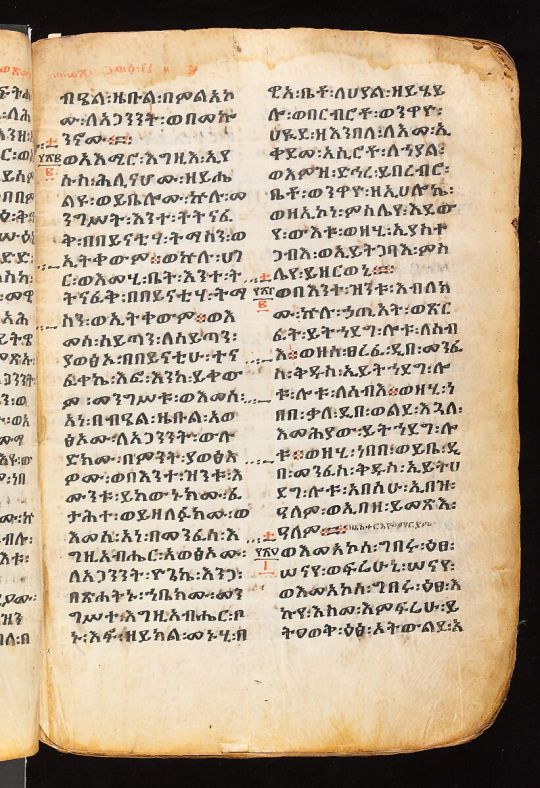 ብዔል፡ዜቡል፡በምልአኮ
ሙ፡ለአጋንንት፡ወበመኩ
ንኖሙ።
ወአእሚሮ፡እግዚእ፡ኢየ
ሱስ፡ሕሊናሆሙ፡ዘይሔ
ልዩ፡ወይቤሎሙ፡ኵሉ፡መ
ንግሥት፡እንተ፡ትትናፈ
ቅ፡በበይናቲሃ፡ትማስን፡ወ
ኢትቀውም።ወኵሉ፡ሀገ
ር፡ወእመሂ፡ቤት፡እንተ፡ት
ትናፈቅ፡በበይናቲሃ፡ትማ
ስን፡ወኢትቀውም።ወእ
መሰ፡ሰይጣን፡ለሰይጣን፡
ያወፅኦ፡በበይናቲሁ፡ተና
ፈቀኬ፡እፎ፡እንከ፡ይቀው
ም፡መንግሥቱ፡ወእመሰ፡
አነ፡በብዔል፡ዜቡል፡አወ
ፅኦሙ፡ለአጋንንት፡ውሉ
ድክሙ፡በምንት፡ያወፅእ
ዎሙ፡ወበእንተ፡ዝንቱ፡እ
ሙንቱ፡ይከውኑክሙ፡ፈ
ታሕተ፡ወይዘልፉክሙ፡ወ
እመሰ፡አነ፡በመንፈስ፡እ
ግዚአብሔር፡አወፅኦሙ፡
ለአጋንንት፡ዮጊኬ፡እንጋ፡
በጽሐትኑ፡ኀቤክሙ፡መን
ግሥተ፡እግዚአብሔር፡ቦ
ኑ፡እፎ፡ዘይክል፡መኑሂ፡በ
ዊአ፡ቤቶ፡ለሀያል፡ዘይሄይ
ሎ፡ወበርብሮቶ፡ወንዋዮ፡
ዘእንበለ፡ለእመ፡ኢ
ቀደመ፡አሲሮቶ፡ለኀያል፡
ወእምዝ፡ድኅረ፡ይበረብሮ፡
ቤቶ፡ወንዋዮ፡ዘኢሀሎኬ፡
ወዘኢኮነ፡ምስሌየ፡እደው
የ፡ውእቱ፡ወዘሂ፡ኢያስተ
ጋብእ፡ወኢይትጋባእ፡ምስ
ሌየ፡ይዘርወኒ።
ወበእንተ፡ዝንቱ፡እብለክ
ሙ፡ኵሉ፡ኃጢአት፡ወጽር
ፈት፡ይትኀደግ፡ሎቱ፡ለሰብ
እ።ወዘሰ፡ፀረፈ፡ዲበ፡መንፈ
ስ፡ቅዱስ፡ኢይትኀደግ፡ሎ
ቱ፡ሎቱ፡ለሰብእ።ወዘሂ፡ነ
በበ፡ቃለ፡ዲበ፡ወልደ፡እጓለ፡
እመሕያው፡ይትኀደግ፡ሎ
ቱ።ወዘሂ፡ነበበ፡ወይቤ፡ዲ
በ፡መንፈስ፡ቅዱስ፡ኢይትሀ
ደግ፡ሎቱ፡አበሳሁ፡ኢበዝ፡
ዓለም፡ወኢበዘ፡ይመጽእ፡
ዓለም።
ወእመአኮሰ፡ግበሩ፡ዕፀ፡
ሠናየ፡ወፍሬሁኒ፡ሠናየ፡
ወእመአኮሰ፡ግበሩ፡ዕፀ፡እ
ኩየ፡እስመ፡እምፍሬሁ፡ይ
ትዐወቅ፡ዕፅ፡ኦትውልደ፡አ